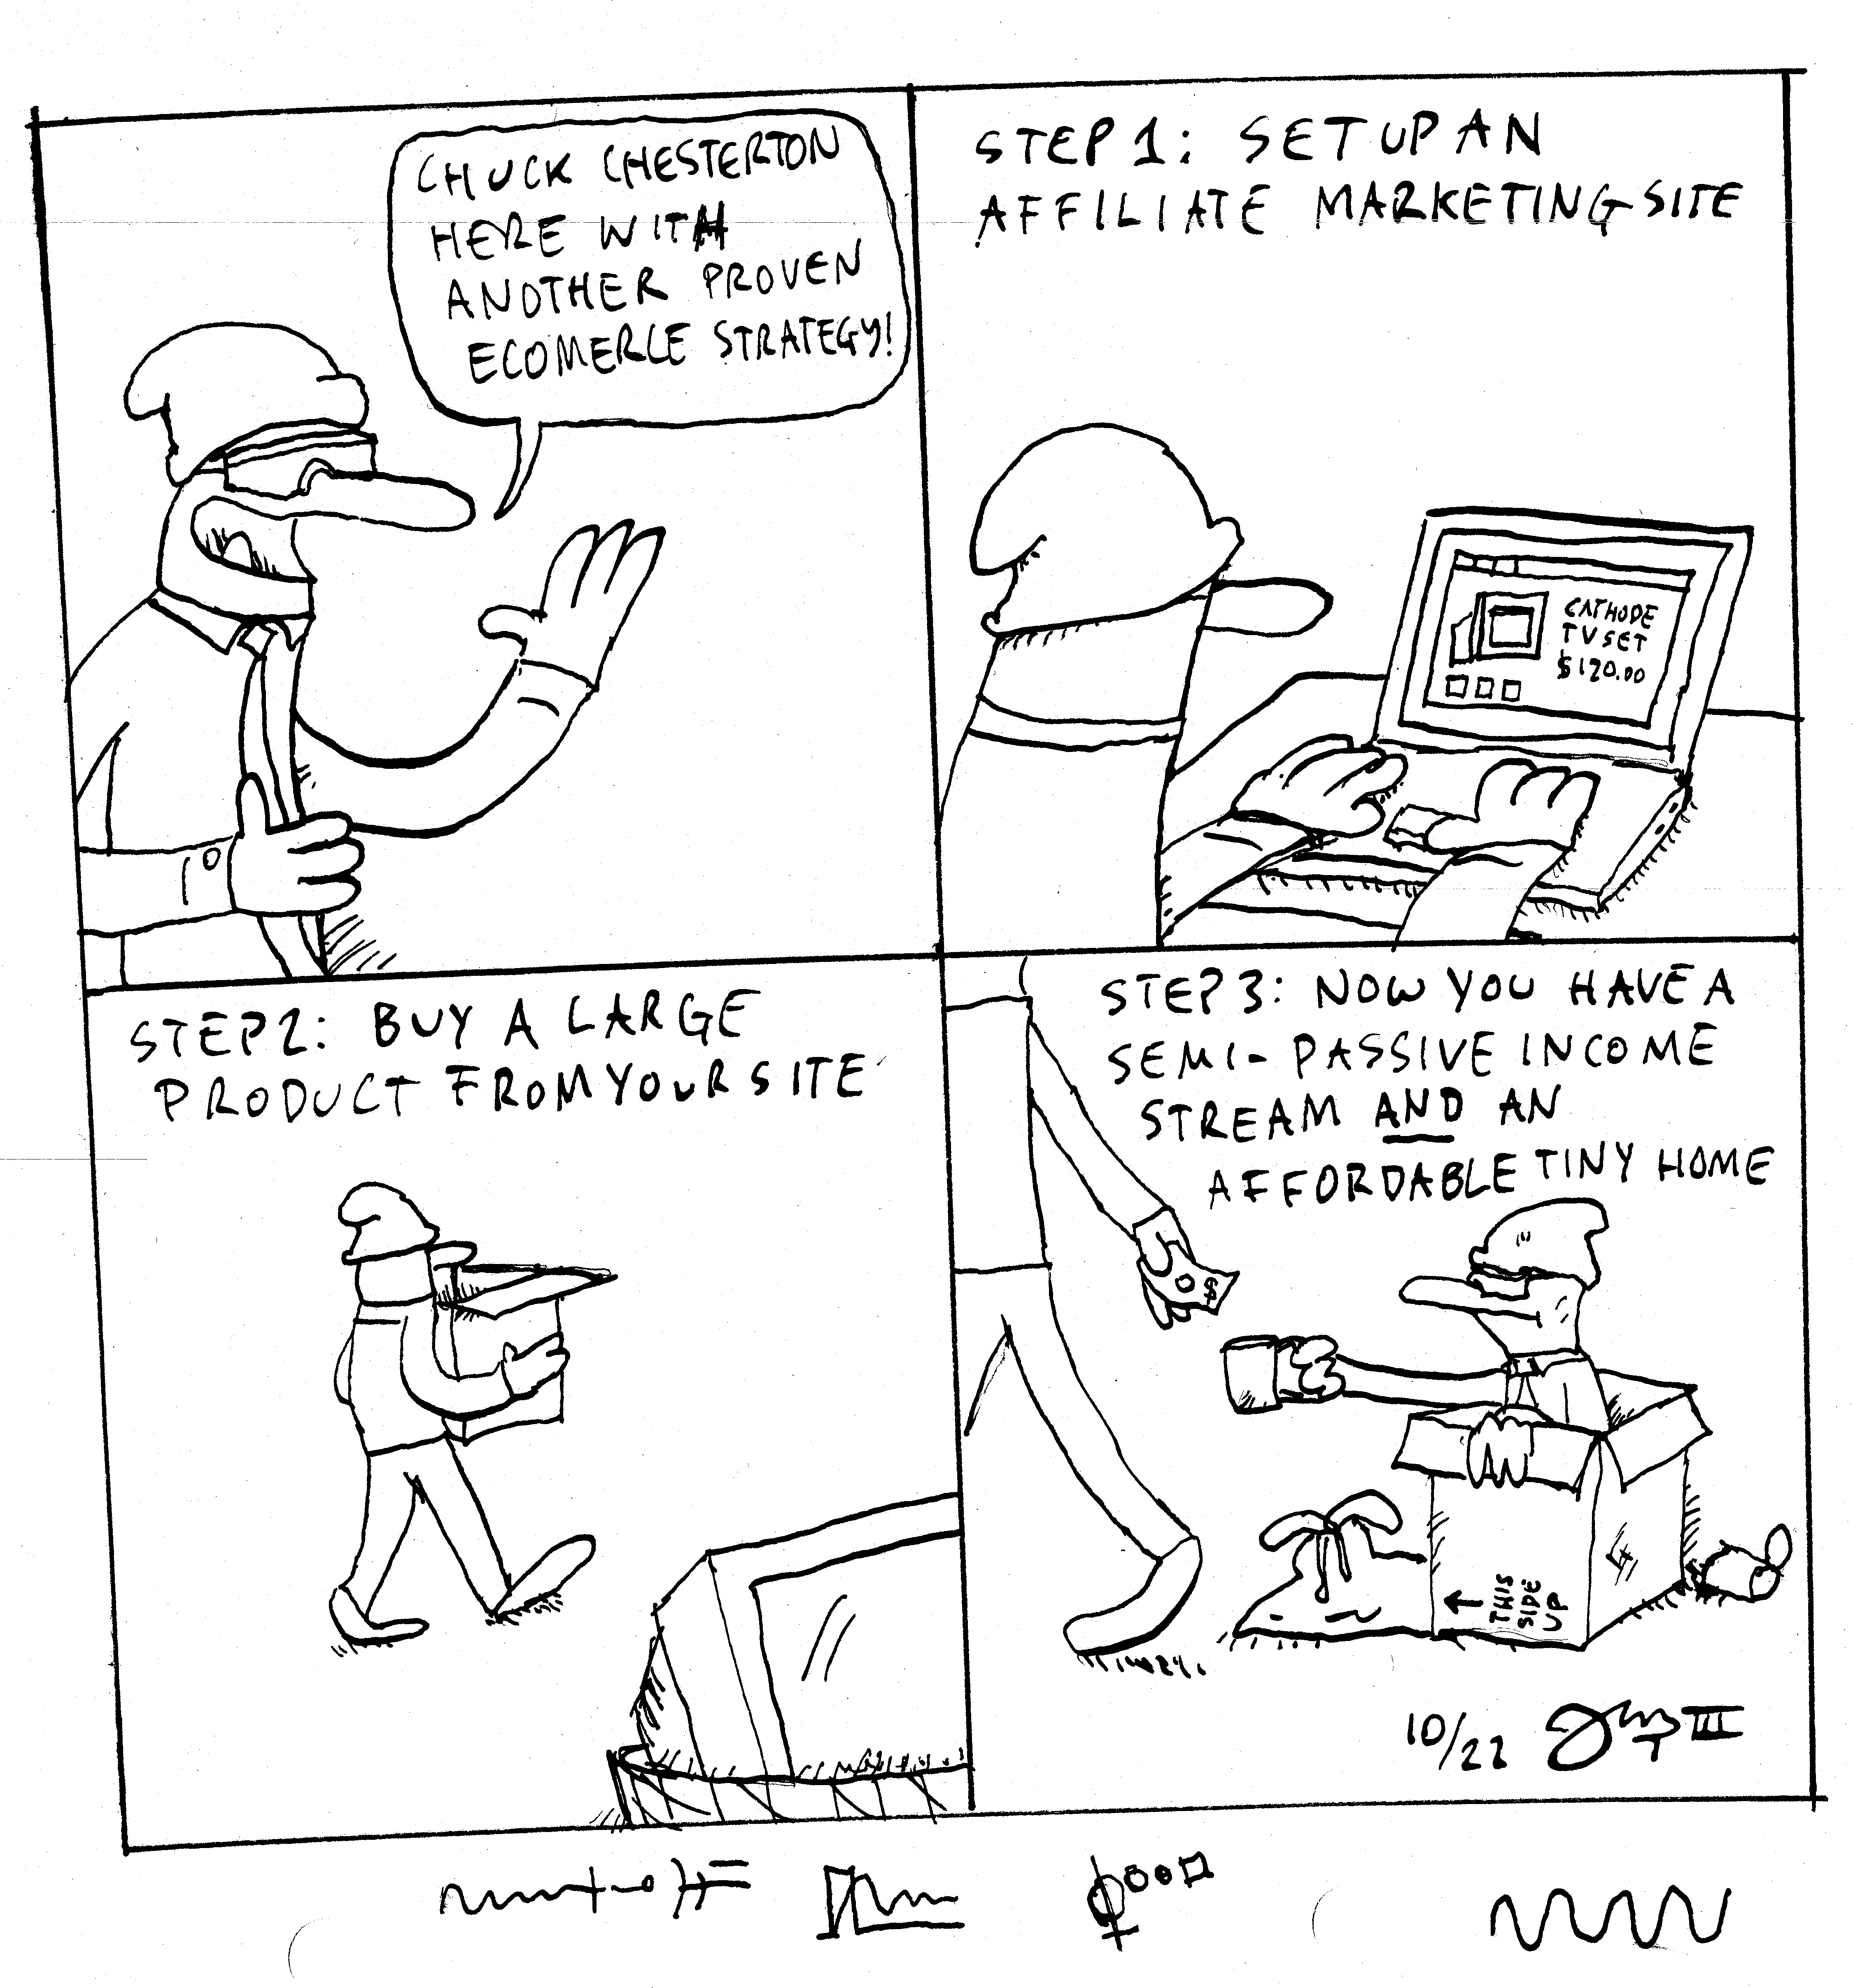 CHUCK CHESTERTON
HERE WITH
ANOTHER PROVEN
ECOMERCE STRATEGY!
STEP 1: SET UP AN
AFFILIATE MARKETING SITE
CATHODE
TV SET
$120.00
STEP 2: BUY A LARGE
PRODUCT FROM YOUR SITE
STEP 3: NOW YOU HAVE A
SEMI-PASSIVE INCOME
STREAM AND AN
AFFORDABLE TINY HOME
$
THIS
SIDE
UP
10/22 III